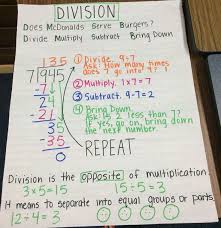 DIVISION
Does McDonalds Serve Burgers?
Divide Multiply Subtract Bring Down
135
7)945
-7↓
24
-21↓
35
-35
0
① Divide. 9÷7
Ask: How many times
does 7 go into 9? 1
② Multiply. 1x7=7
③ Subtract. 9-7=2
④ Bring Down
Ask: Is 2 less than 7?
If yes, go on, bring down
the next number.
REPEAT
Division is the opposite of multiplication.
3x5=15 15÷5=3
It means to separate into equal groups or parts
12÷4=3